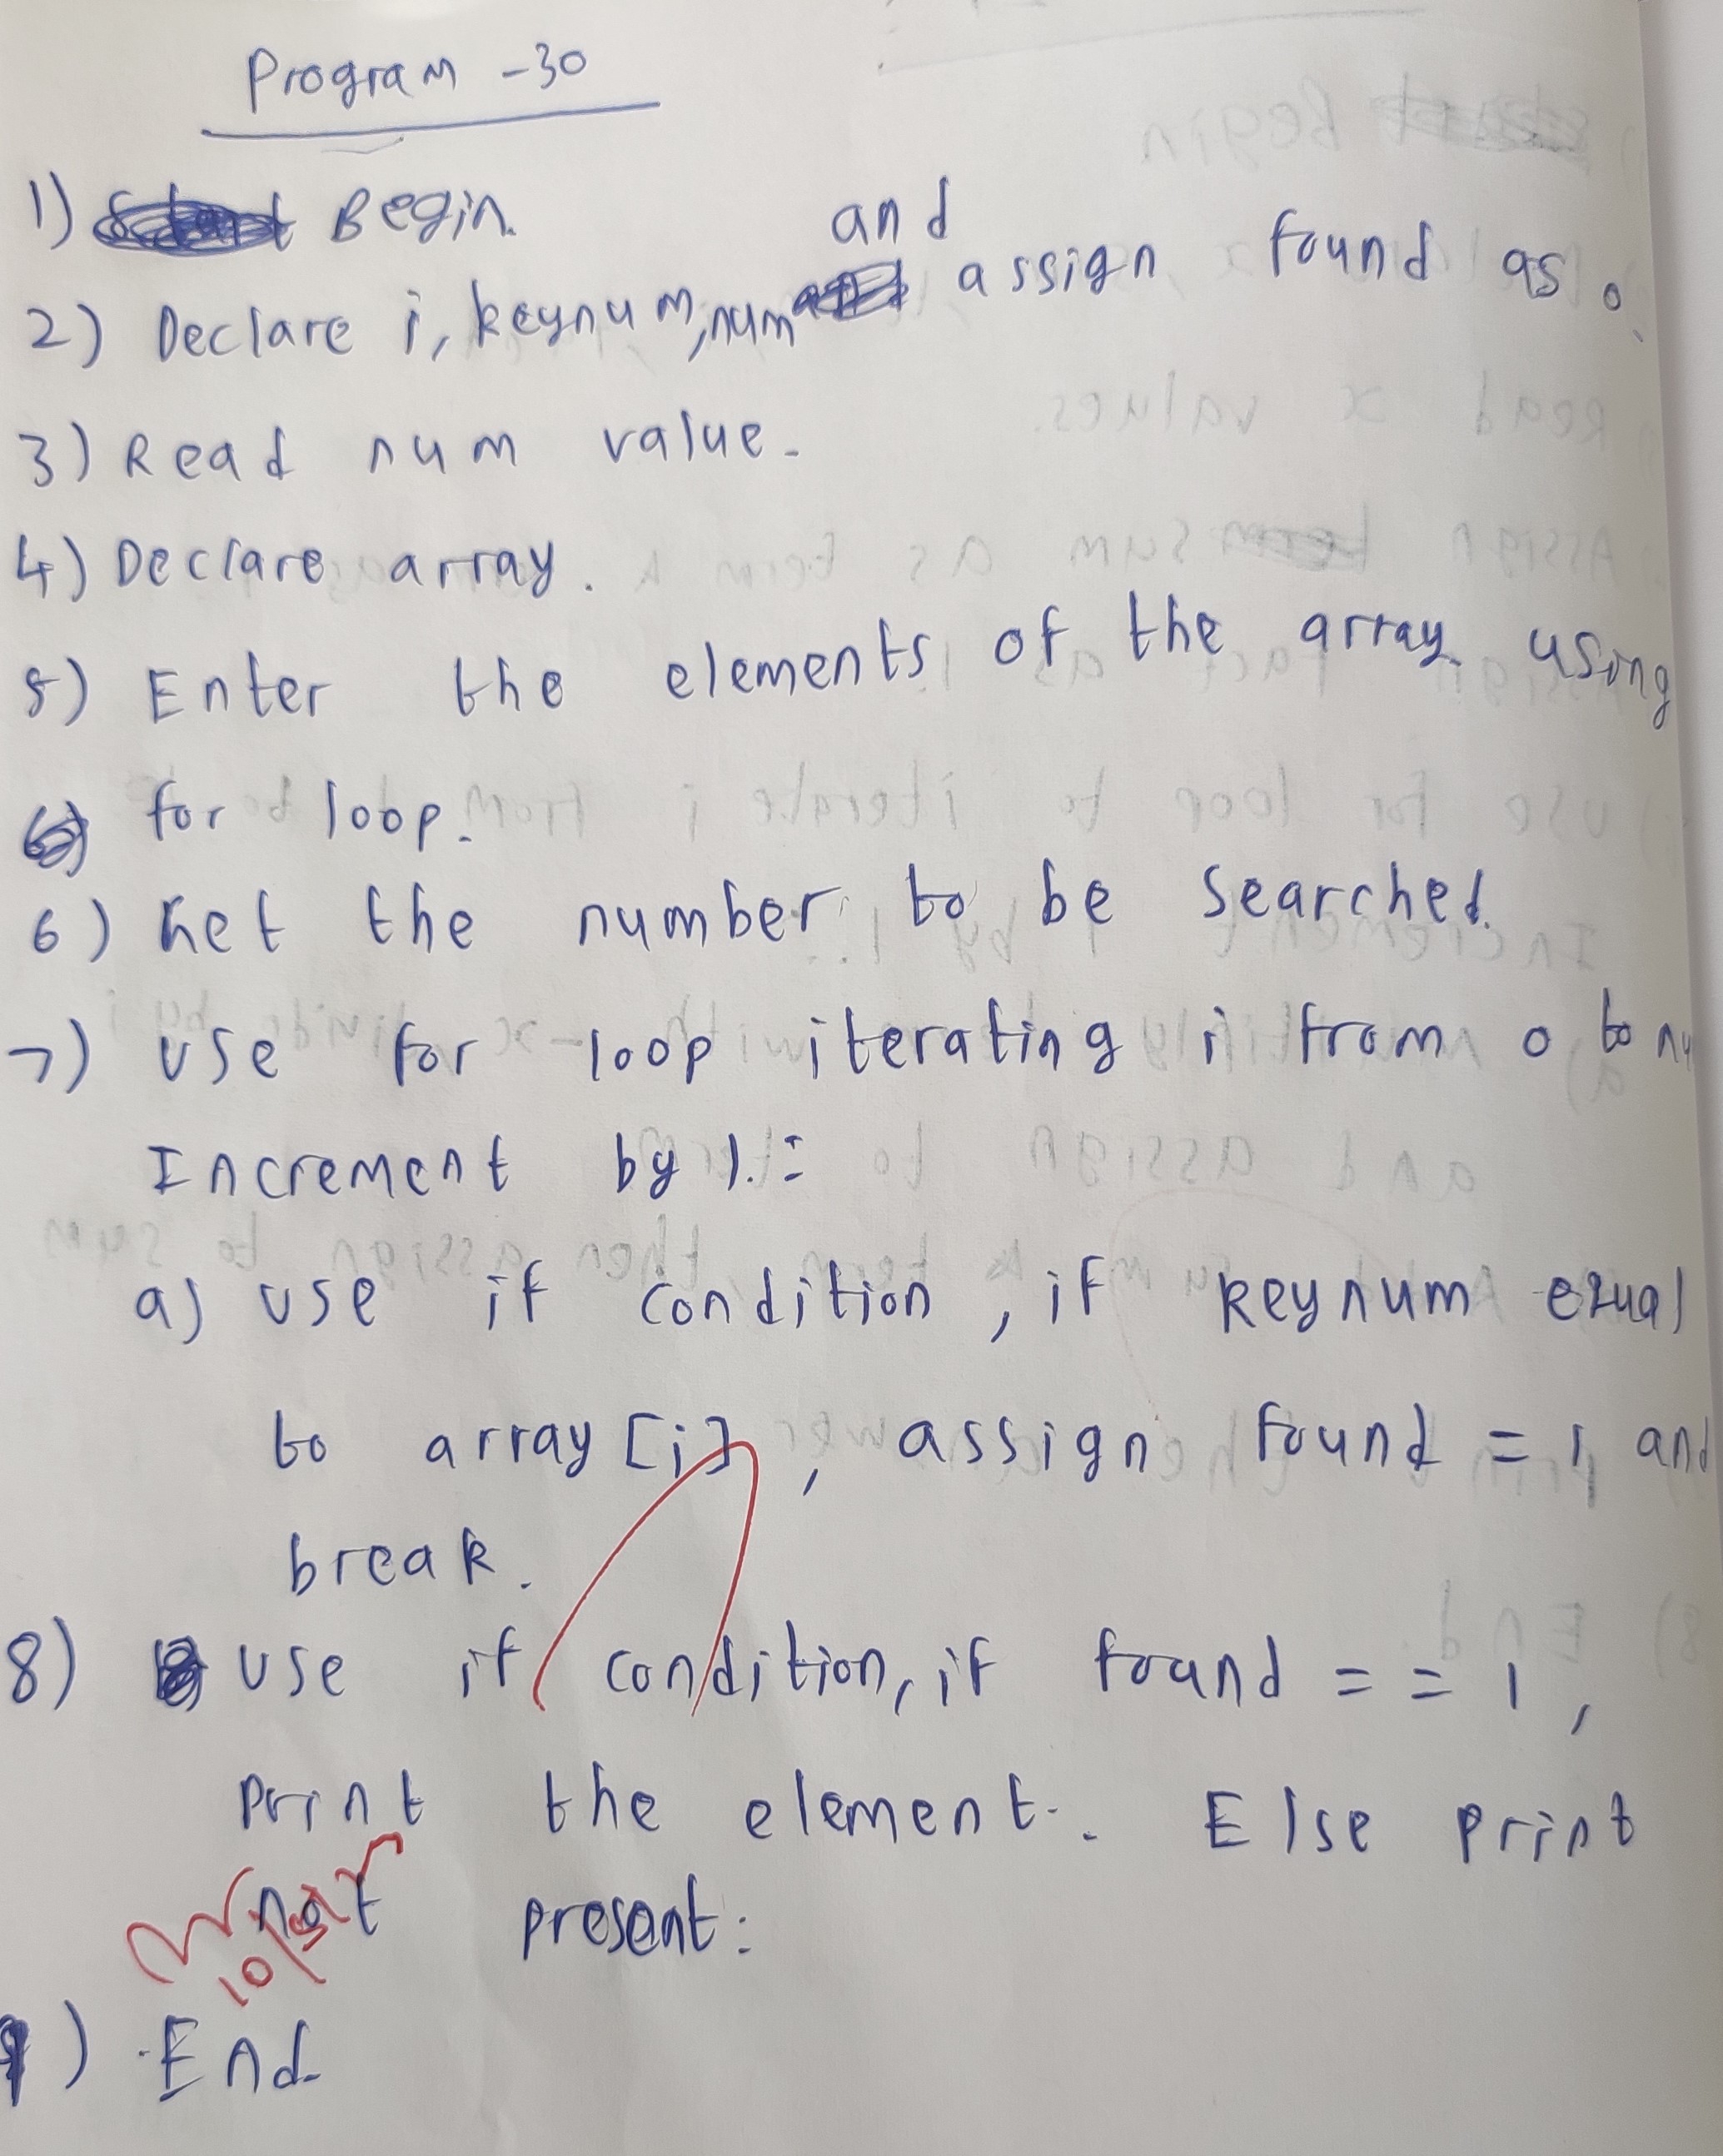 Program -30
1) Begin.
and
2) Declare i, keynum, num assign found as 0.
3) Read num value.
4) Declare array.
5) Enter the elements of the array using
for loop.
6) Get the number to be searched.
7) Use for loop iterating i from 0 to nu
Increment by 1.:
a) Use if condition, if keynum equal
to array[i], assign found = 1 and
break.
8) Use if condition, if found == 1,
Print the element. Else print
not present:
9) End